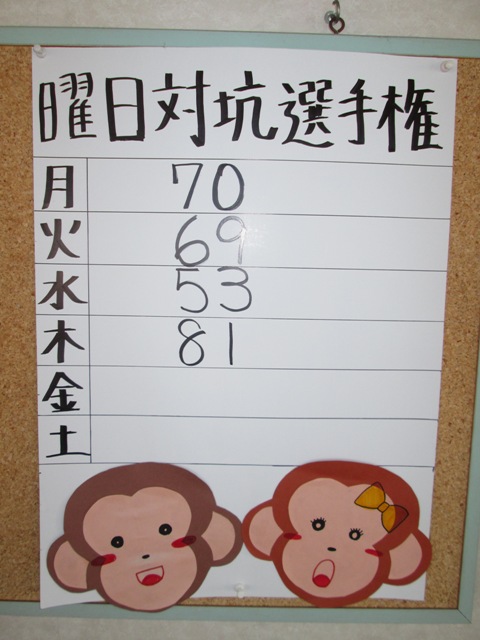 曜日対坑選手権
月 70
火 69
水 53
木 81
金
土